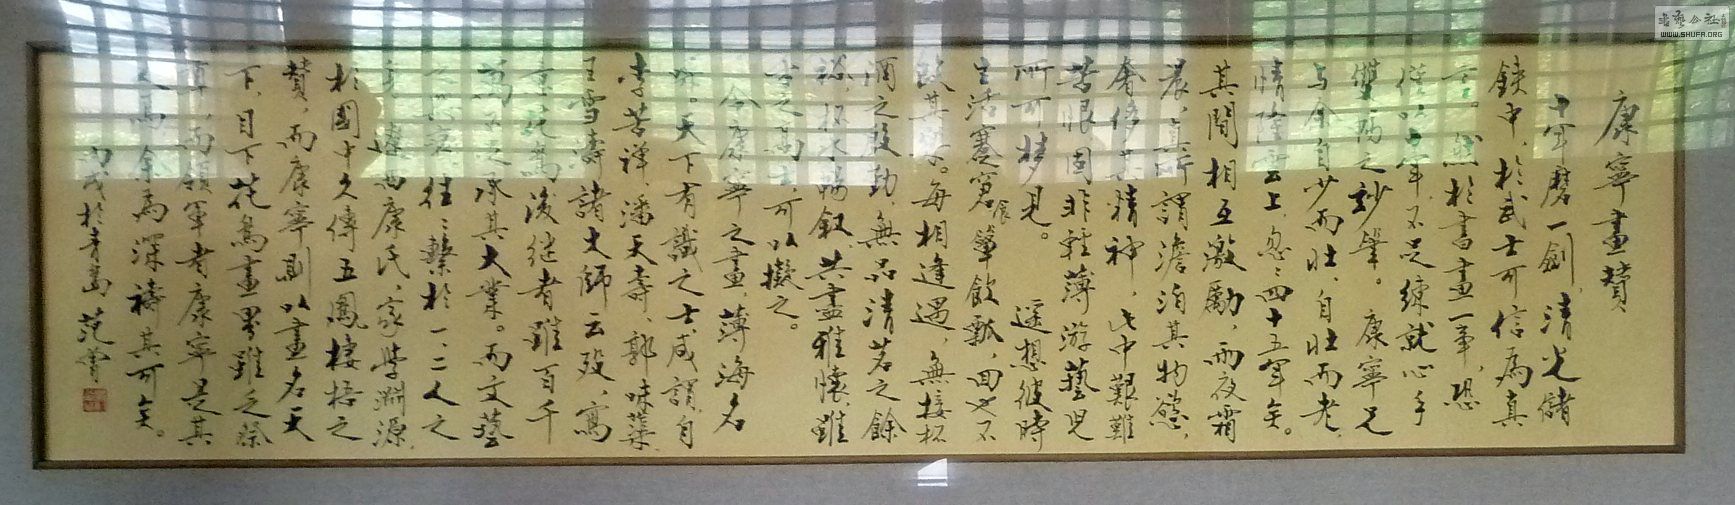 康寧畫贊
十年磨一劍，清光儲
鋏中，於武士可信為真
言。然於書畫一事，恐
僅以十年，不足練就心手
雙暢之妙筆。康寧兄
与余自少而壯，自壯而老，
情陸雲上，忽忽四十五年矣。
其間相互激勵，雨夜霜
晨，真所謂澹泊其物慾，
奢侈其精神，此中艱難
苦恨固非輕薄游藝兒
所可梦見。遥想彼時
生活蹇窘，簞食瓢飲，回也不
改其樂。每相逢遇，無接杯
酒之殷勤，無品清茗之餘
裕，抵掌暢敘，共盡雅懷，雖
古之高士，可以擬之。
今康寧之畫，薄海名
聞。天下有識之士，咸謂自
李苦禪、潘天壽、郭味蕖、
王雪濤諸大師云歿，寫
意花鳥後繼者雖百千
萬
承其大業。而文藝
往往繫於一、二人之
身。遼西康氏，家學淵源，
於國中久傳五鳳棲梧之
贊，而康寧則以畫名天
下，目下花鳥畫界雖乏祭
酉，而領軍者康寧是其
人焉，余為深禱其可矣。
丙戌於青島 范曾
書藝公社
WWW.SHUFA.ORG